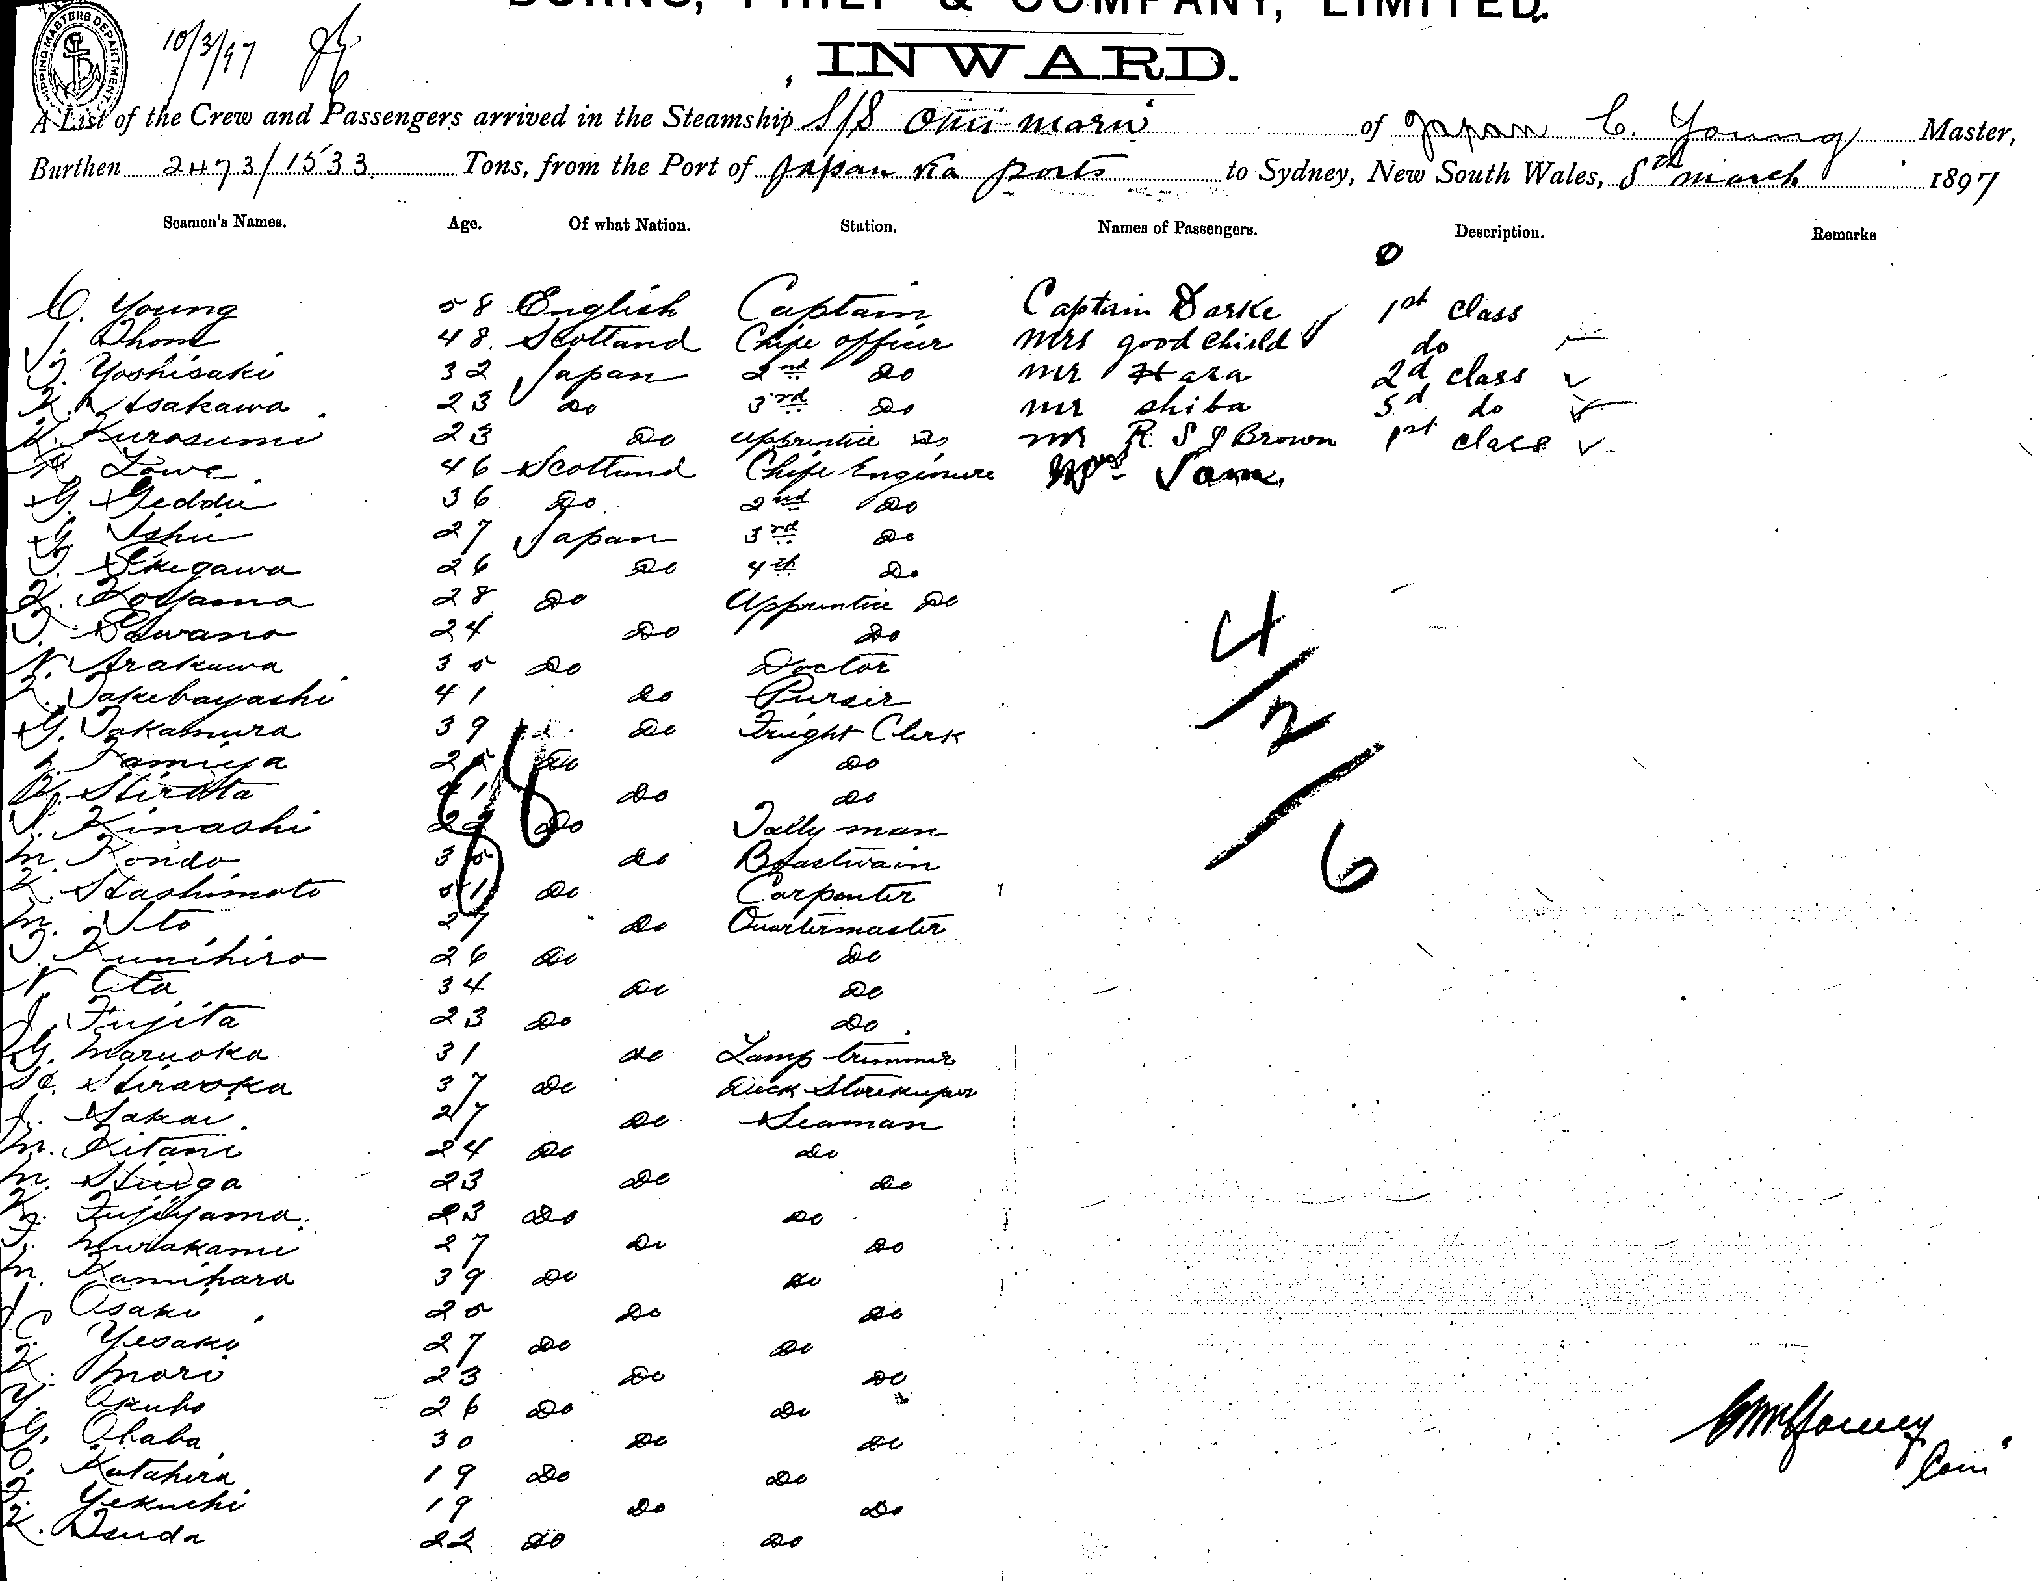 BURNS, PHILP & COMPANY, LIMITED.
10/3/97
INWARD.
A List of the Crew and Passengers arrived in the Steamship S/S Omi maru of Japan C. Young Master,
Burthen 2473/1533 Tons, from the Port of Japan via ports to Sydney, New South Wales, 8th march 1897
Seamen's Names. Age. Of what Nation. Station. Names of Passengers. Description. Remarks
C. Young 58 English Captain Captain Darke 1st class
J. Thom 48. Scotland Chife officer mrs good child do
Yoshisaki 32 Japan 2nd do mr Hara 2d class
K. Asakawa 23 do 3rd do mr shiba 3d do
K. Kurosumi 23 Do Apprentice Do mr R. S J Brown 1st class
Lowe 46 Scotland Chife Engineere Sam
G. Geddie 36 Do 2nd Do
G. Ishii 27 Japan 3rd Do
Sekigawa 26 Do 4th Do
K. Koyama 28 Do Apprentice Do
Sawano 24 Do Do
N. Arakawa 35 Do Doctor
Takebayashi 41 do Purser
G. Takamura 39 Do Freight Clerk
Tamiya 25 Do Do
Hirata 41 Do Do
Kinashi 22 Do Tally man
m. Kondo 35 do Boastwain
K. Hashimoto 51 Do Carpenter
m. Ito 27 Do Quartermaster
Kunihiro 26 Do Do
N. Ota 34 Do Do
J. Fujita 23 Do Do
G. maruoka 31 do Lamp trimmer
Hiraoka 37 Do Deck Storekeeper
J. Sakai 27 Do Seaman
m. Kitani 24 Do do
m. Hiuga 23 Do Do
K. Fujiyama 23 Do Do
murakami 27 Do Do
m. Kamihara 39 Do do
Osaki 25 Do Do
C. Yesaki 27 Do Do
K. mori 23 Do Do
Y. Okubo 26 Do Do
G. Obaba 30 Do Do
O. Katahira 19 Do Do
Yekuchi 19 Do Do
K. Tsuda 22 do Do
4/2/6